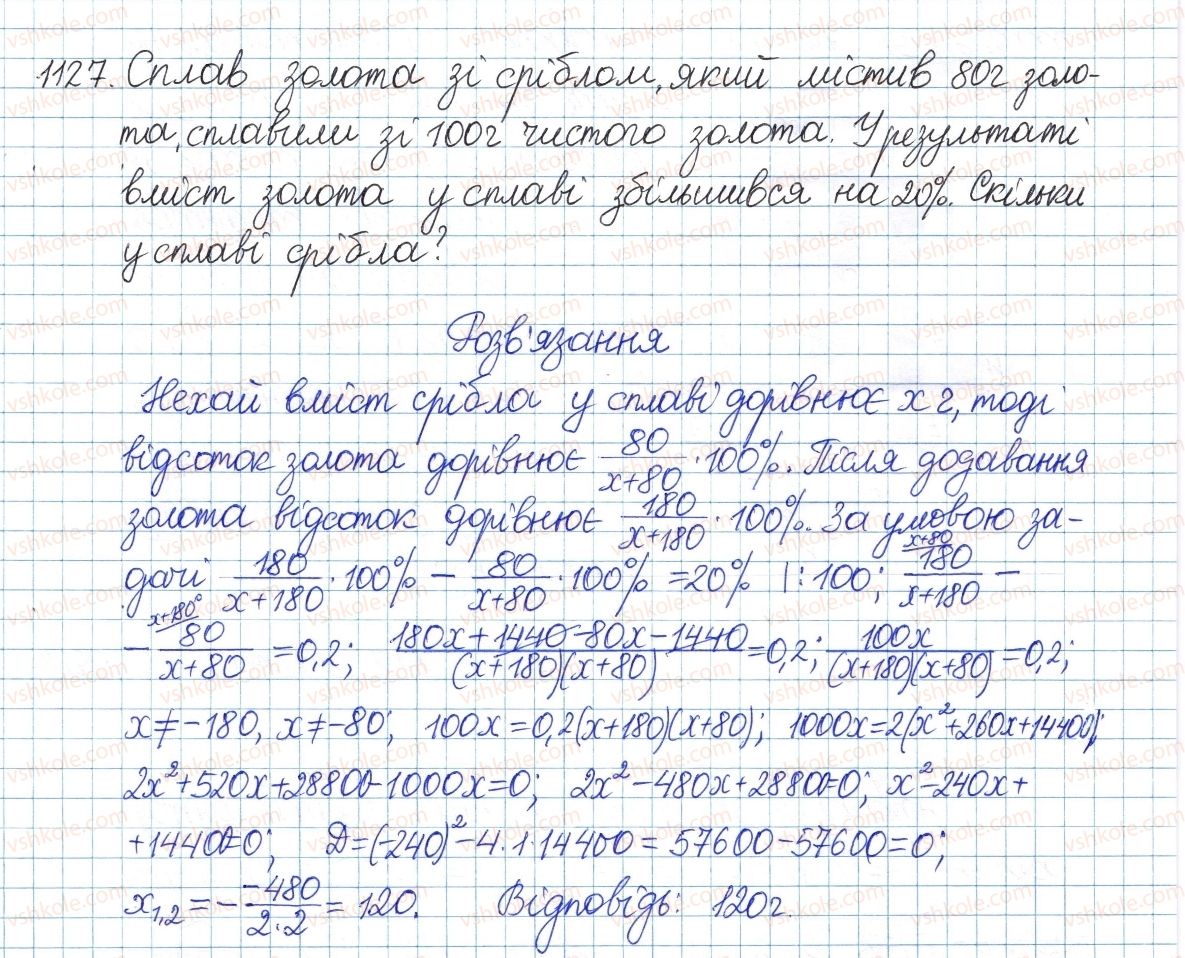 1127. Сплав золота зі сріблом, який містив 80г золо-
та, сплавили зі 100г чистого золота. У результаті
вміст золота у сплаві збільшився на 20%. Скільки
у сплаві срібла?
Розв'язання
Нехай вміст срібла у сплаві дорівнює x г, тоді
відсоток золота дорівнює 80/(x+80) · 100%. Після додавання
золота відсоток дорівнює 180/(x+180) · 100%. За умовою за-
дачі 180/(x+180) · 100% − 80/(x+80) · 100% = 20% |:100; x+80 180/(x+180) −
− x+180 80/(x+80) = 0,2; (180x+1440−80x−1440)/((x+180)(x+80)) = 0,2; 100x/((x+180)(x+80)) = 0,2;
x ≠ −180, x ≠ −80; 100x = 0,2(x+180)(x+80); 1000x = 2(x²+260x+14400);
2x²+520x+28800−1000x=0; 2x²−480x+28800=0; x²−240x+
+14400=0; D=(−240)²−4·1·14400 = 57600−57600=0;
x₁,₂ = − −480/(2·2) = 120. Відповідь: 120г.
vshkole.com